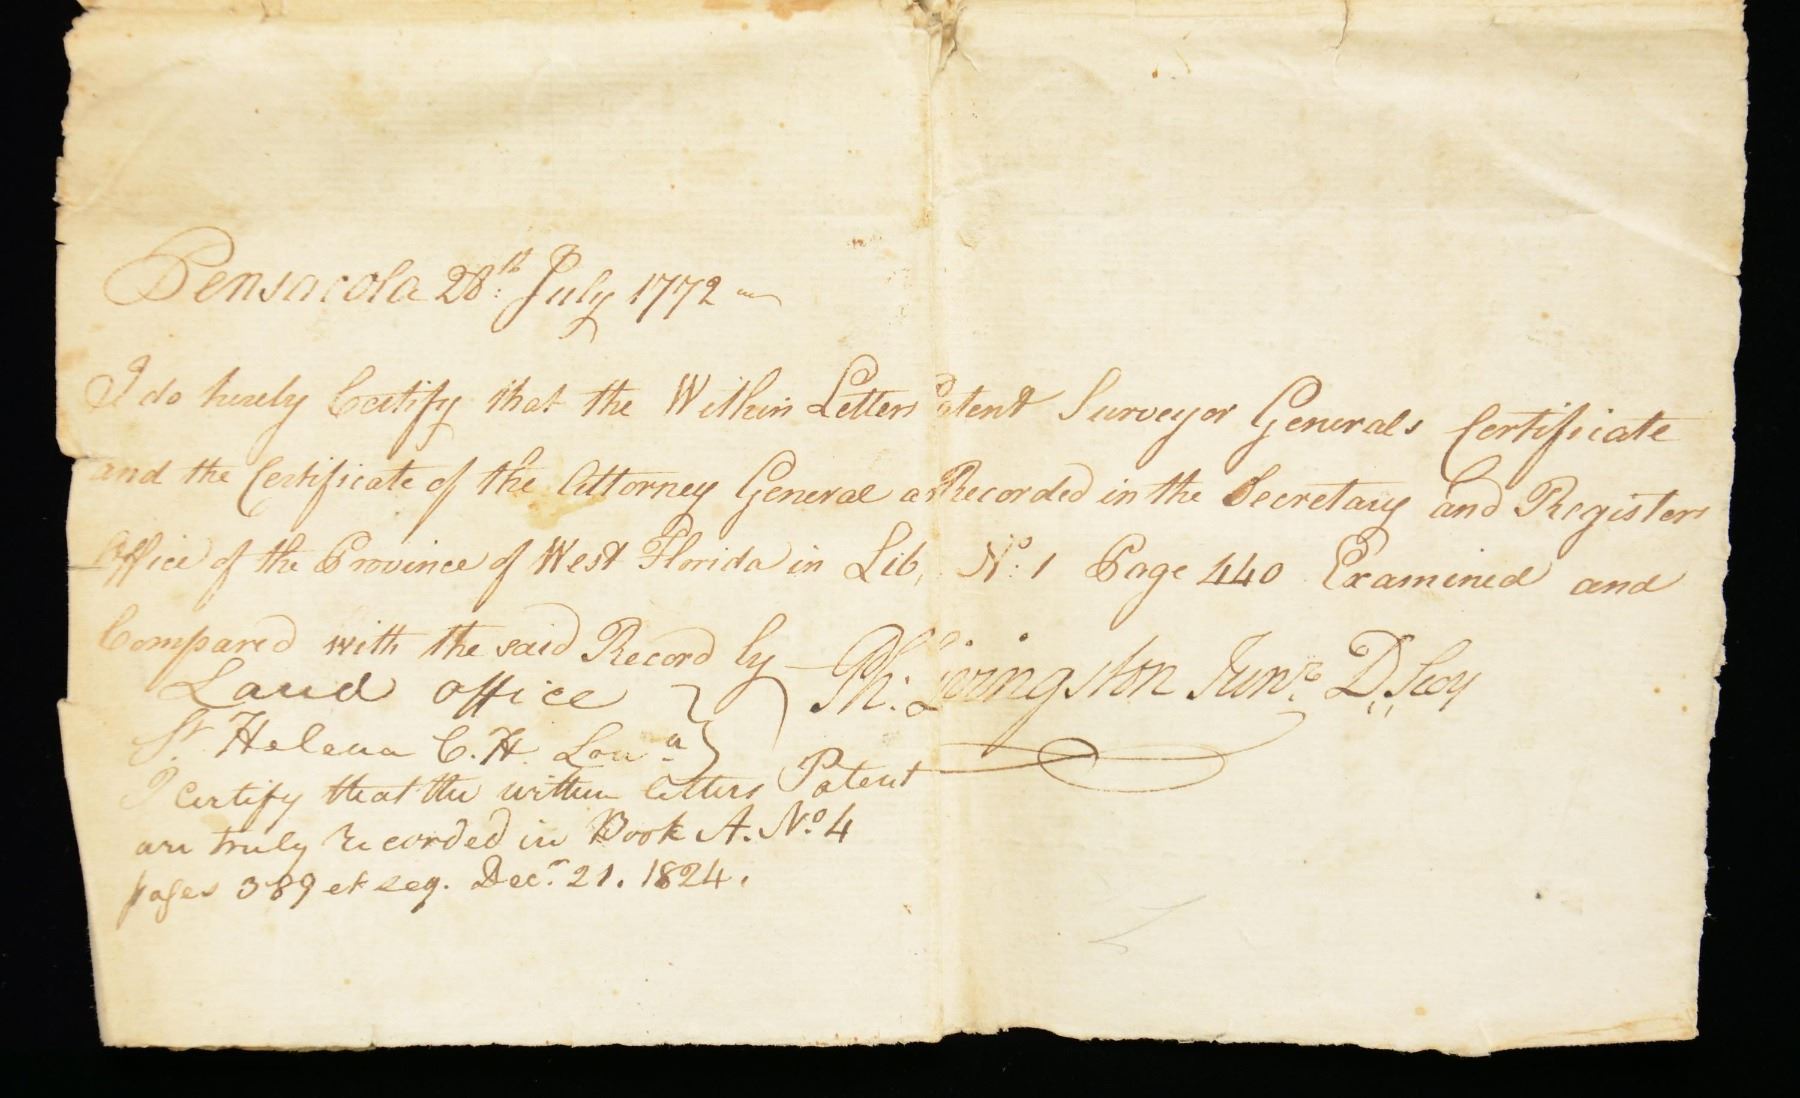 Pensacola 28th: July 1772
I do hereby Certify that the Within Letters Patent Surveyor Generals Certificate
and the Certificate of the Attorney General as Recorded in the Secretary and Registers
Office of the Province of West Florida in Lib, No: 1 Page 440 Examined and
Compared with the said Record by Ph: Livingston Junr: D,, Secy
Land office
St. Helena C. H. Loua
I certify that the within letters Patent
are truly recorded in Book A. No. 4
pages 389 et seq. Decr. 21. 1824.